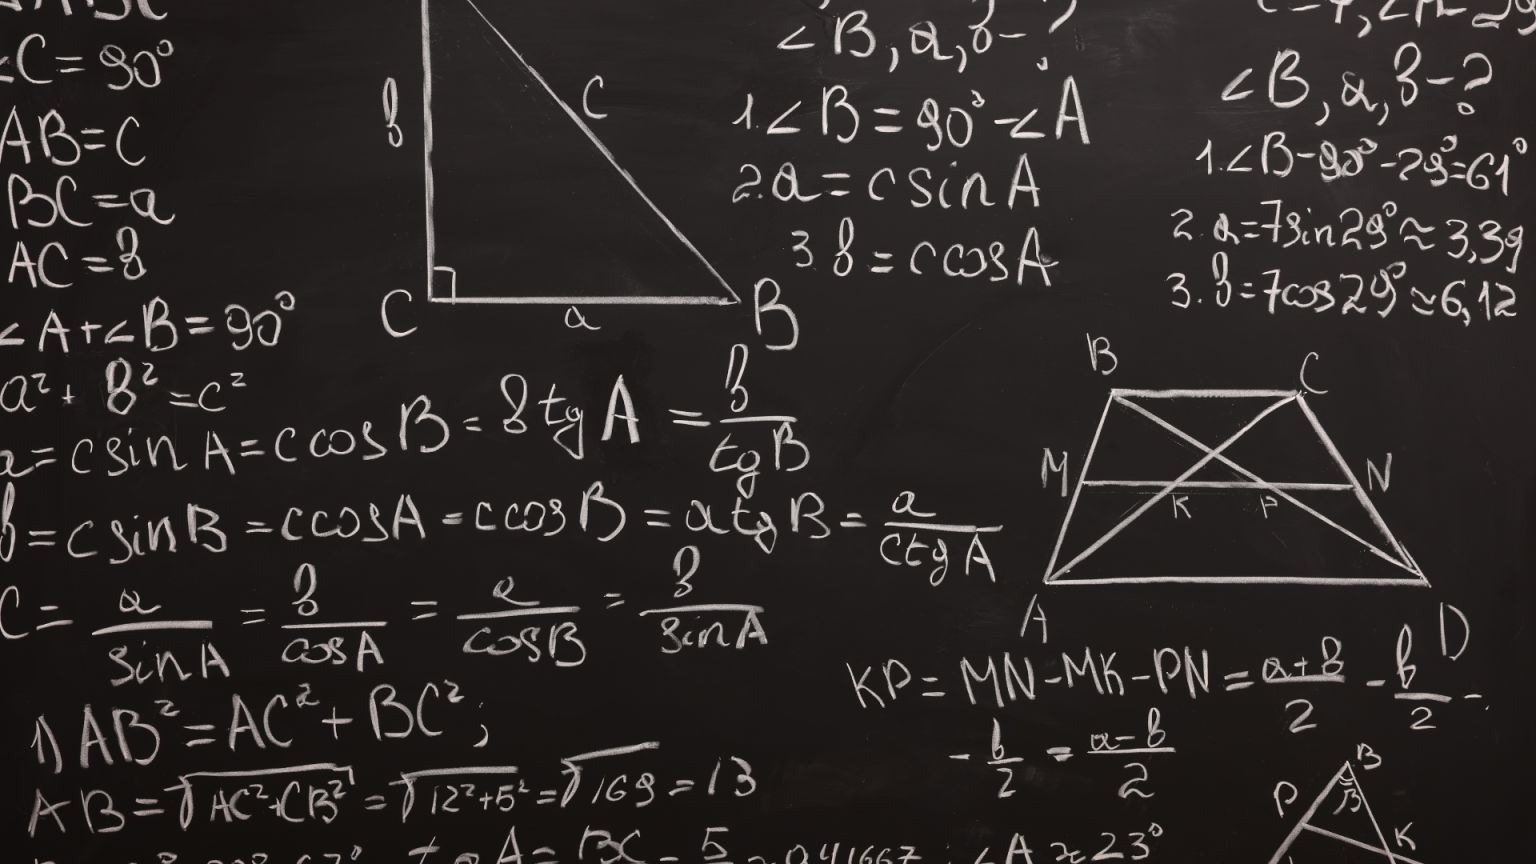 ∠C = 90°
AB = c
BC = a
AC = b
∠A + ∠B = 90°
a² + b² = c²
a = c sin A = c cos B = b tg A = b/tg B
b = c sin B = c cos A = c cos B = a tg B = a/ctg A
C = a/sin A = b/cos A = a/cos B = b/sin A
1) AB² = AC² + BC² ;
AB = √AC² + CB² = √12² + 5² = √169 = 13
tg A = BC = 5 ≈ 0,41667 ; ∠A ≈ 23°
b
c
C
a
B
∠B, a, b - ?
1. ∠B = 90° - ∠A
2. a = c sin A
3. b = c cos A
∠B, a, b - ?
1. ∠B - 90° - 29° = 61°
2. a = 7 sin 29° ≈ 3,39
3. b = 7 cos 29° ≈ 6,12
B
C
M
N
K
P
A
D
KP = MN - MK - PN = a+b/2 - b/2 -
- b/2 = a-b/2
B
β
P
K